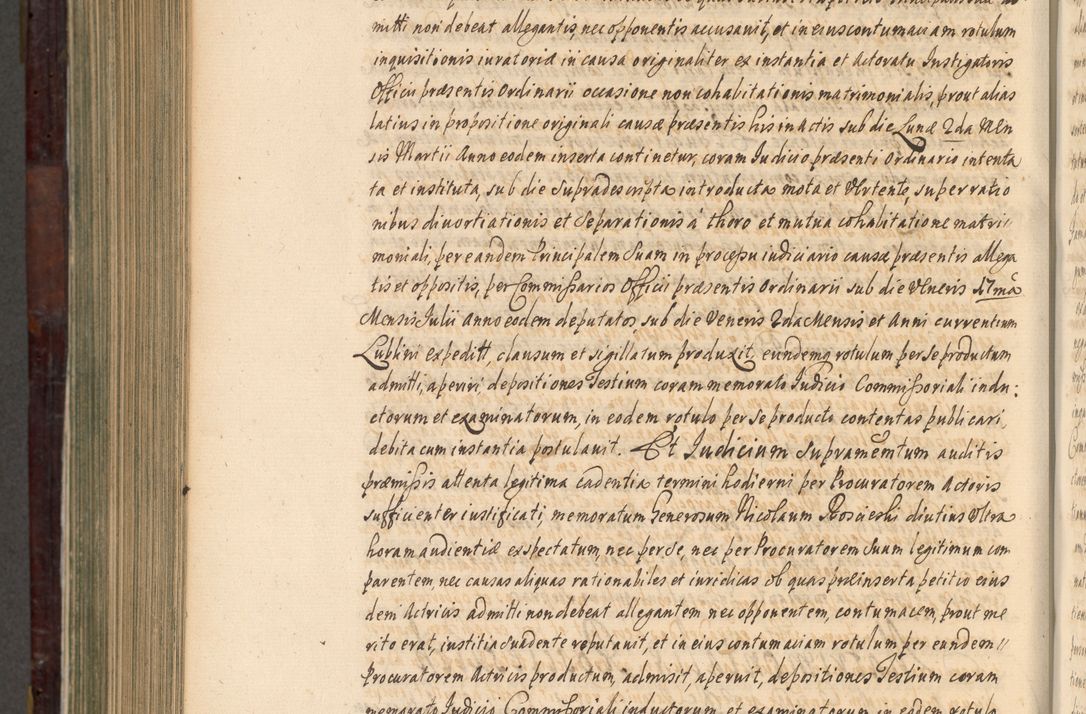 mitti non debeat allegantis, nec opponentis accusavit, et in eius contumaciam rotulum
inquisitionis iuratoriæ in causa originaliter ex instantia et Actoratu Instigatoris
Officii præsentis Ordinarii occasione non cohabitationis matrimonialis, prout alias
latius in propositione originali causæ præsentis his in Actis sub die Lunæ 2da Men
sis Martii Anno eodem inserta continetur, coram Iudicio præsenti Ordinario intenta
ta et instituta, sub die supradescripta introducta mota et Vertente, super ratio
nibus divortiationis et Separationis à thoro et mutua cohabitatione matri
moniali, per eandem Principalem Suam in processu iudiciario causæ præsentis allega
tis et oppositis, per Commissarios Officii præsentis Ordinarii sub die Veneris 17mâ
Mensis Julii Anno eodem deputatos, sub die Veneris 2da Mensis et Anni currentium
Lublini expeditt, clausum et sigillatum produxit, eundemq rotulum per se productum
admitti, aperiri depositiones Testium coram memorato Judicio Commissoriali indu:
ctorum et examinatorum, in eodem rotulo per se producto contentas publicari,
debita cum instantia postulavit. Et Iudicium supramentum auditis
præmissis attenta legitima cadentia termini hodierni per Procuratorem Actoris
sufficienter iustificati, memoratum Generosum Nicolaum Roscieski diutius Ultra
horam audientiæ exspectatum, nec per se, nec per Procuratorem Suum legitimum com
parentem, nec causas aliquas rationabiles et iuridicas ob quas præinserta petitio eius
dem Actricis admitti non debeat allegantem nec opponentem, contumacem, prout me
rito erat, iustitia suadente reputavit, et in eius contumaciam rotulum per eundem //
Procuratorem Actricis productum, admisit, aperuit, depositiones Testium coram
memorato Judicio Commissoriali inductorum et examinatorum in eodem rotulo